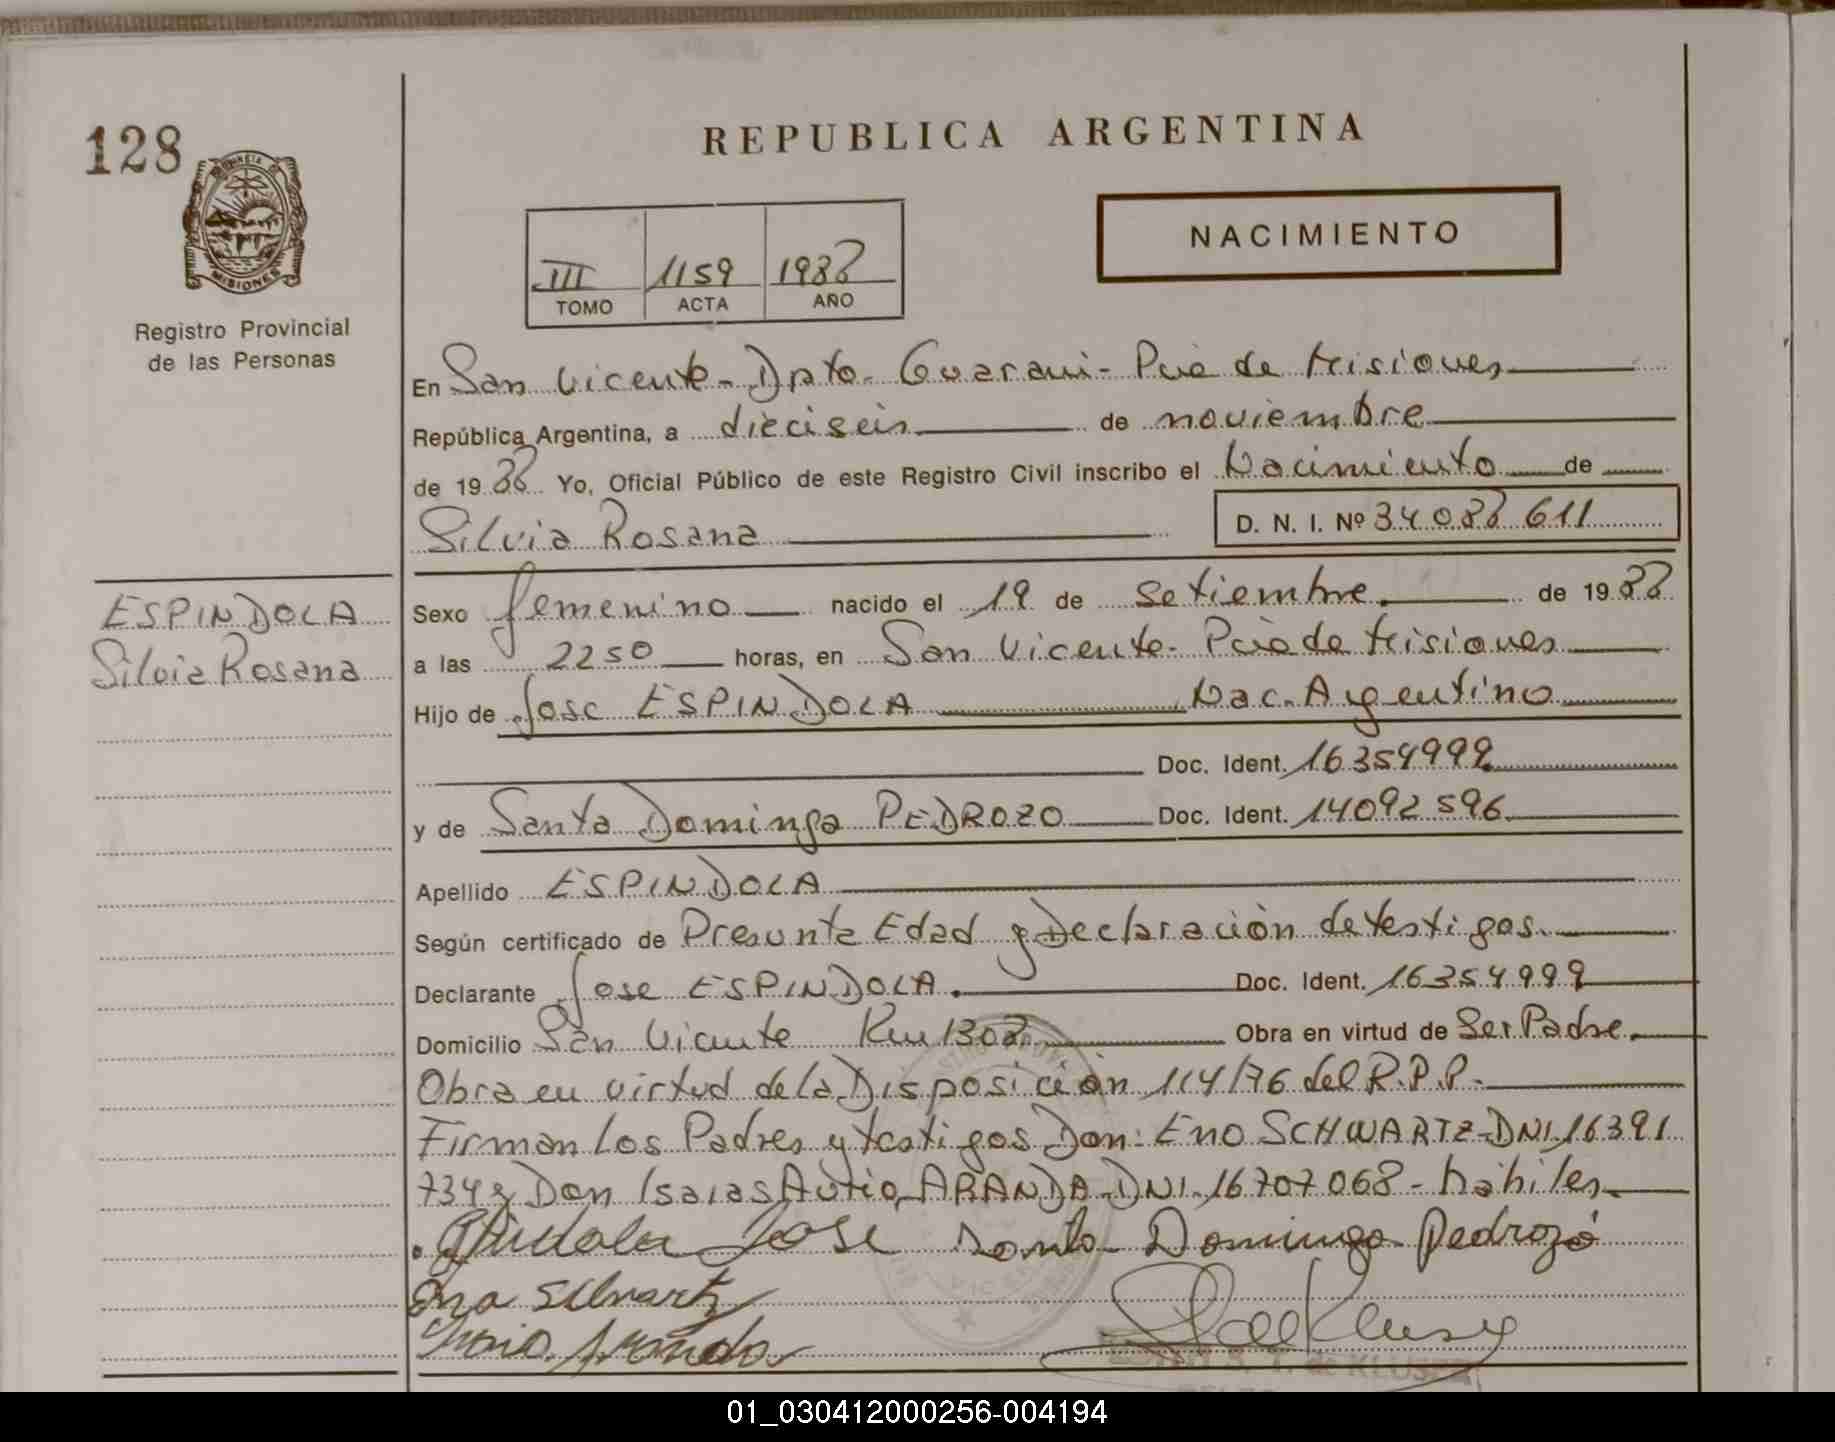 128
PROVINCIA DE
MISIONES
Registro Provincial
de las Personas
REPUBLICA ARGENTINA
NACIMIENTO
III 1159 1988
TOMO ACTA AÑO
En San Vicente - Dpto. Guarani - Pcia de Misiones
República Argentina, a dieciseis de noviembre
de 1988 Yo, Oficial Público de este Registro Civil inscribo el Nacimiento de
Silvia Rosana D. N. I. Nº 34088611
ESPINDOLA
Silvia Rosana
Sexo femenino nacido el 19 de setiembre de 1988
a las 2250 horas, en San Vicente - Pcia de Misiones
Hijo de Jose ESPINDOLA Nac. Argentino
Doc. Ident. 16354999
y de Santa Dominga PEDROZO Doc. Ident. 14092596
Apellido ESPINDOLA
Según certificado de Presunta Edad y Declaración de testigos.
Declarante Jose ESPINDOLA. Doc. Ident. 16354999
Domicilio San Vicente Km 1308 Obra en virtud de Ser Padre.
Obra en virtud de la Disposición 114/76 del R.P.P.
Firman los Padres y testigos Don: Eno SCHWARTZ - DNI. 16391
734 y Don Isaias Autio ARANDA - DNI. 16707068 - habiles
Espindola Jose Santa Dominga Pedrozo
Eno Schwartz
Aranda
de KLUSEN
01_030412000256-004194